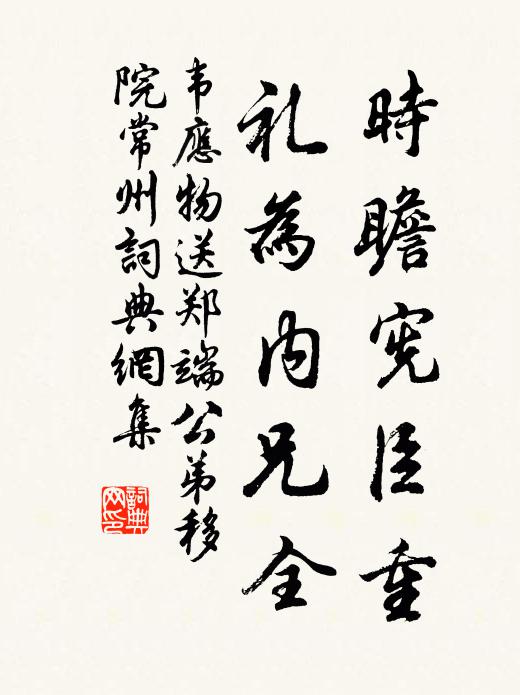 時瞻宪臣重
礼為内兄全
韦應物送郑端公弟移
院常州詞典網集
詞典
网印